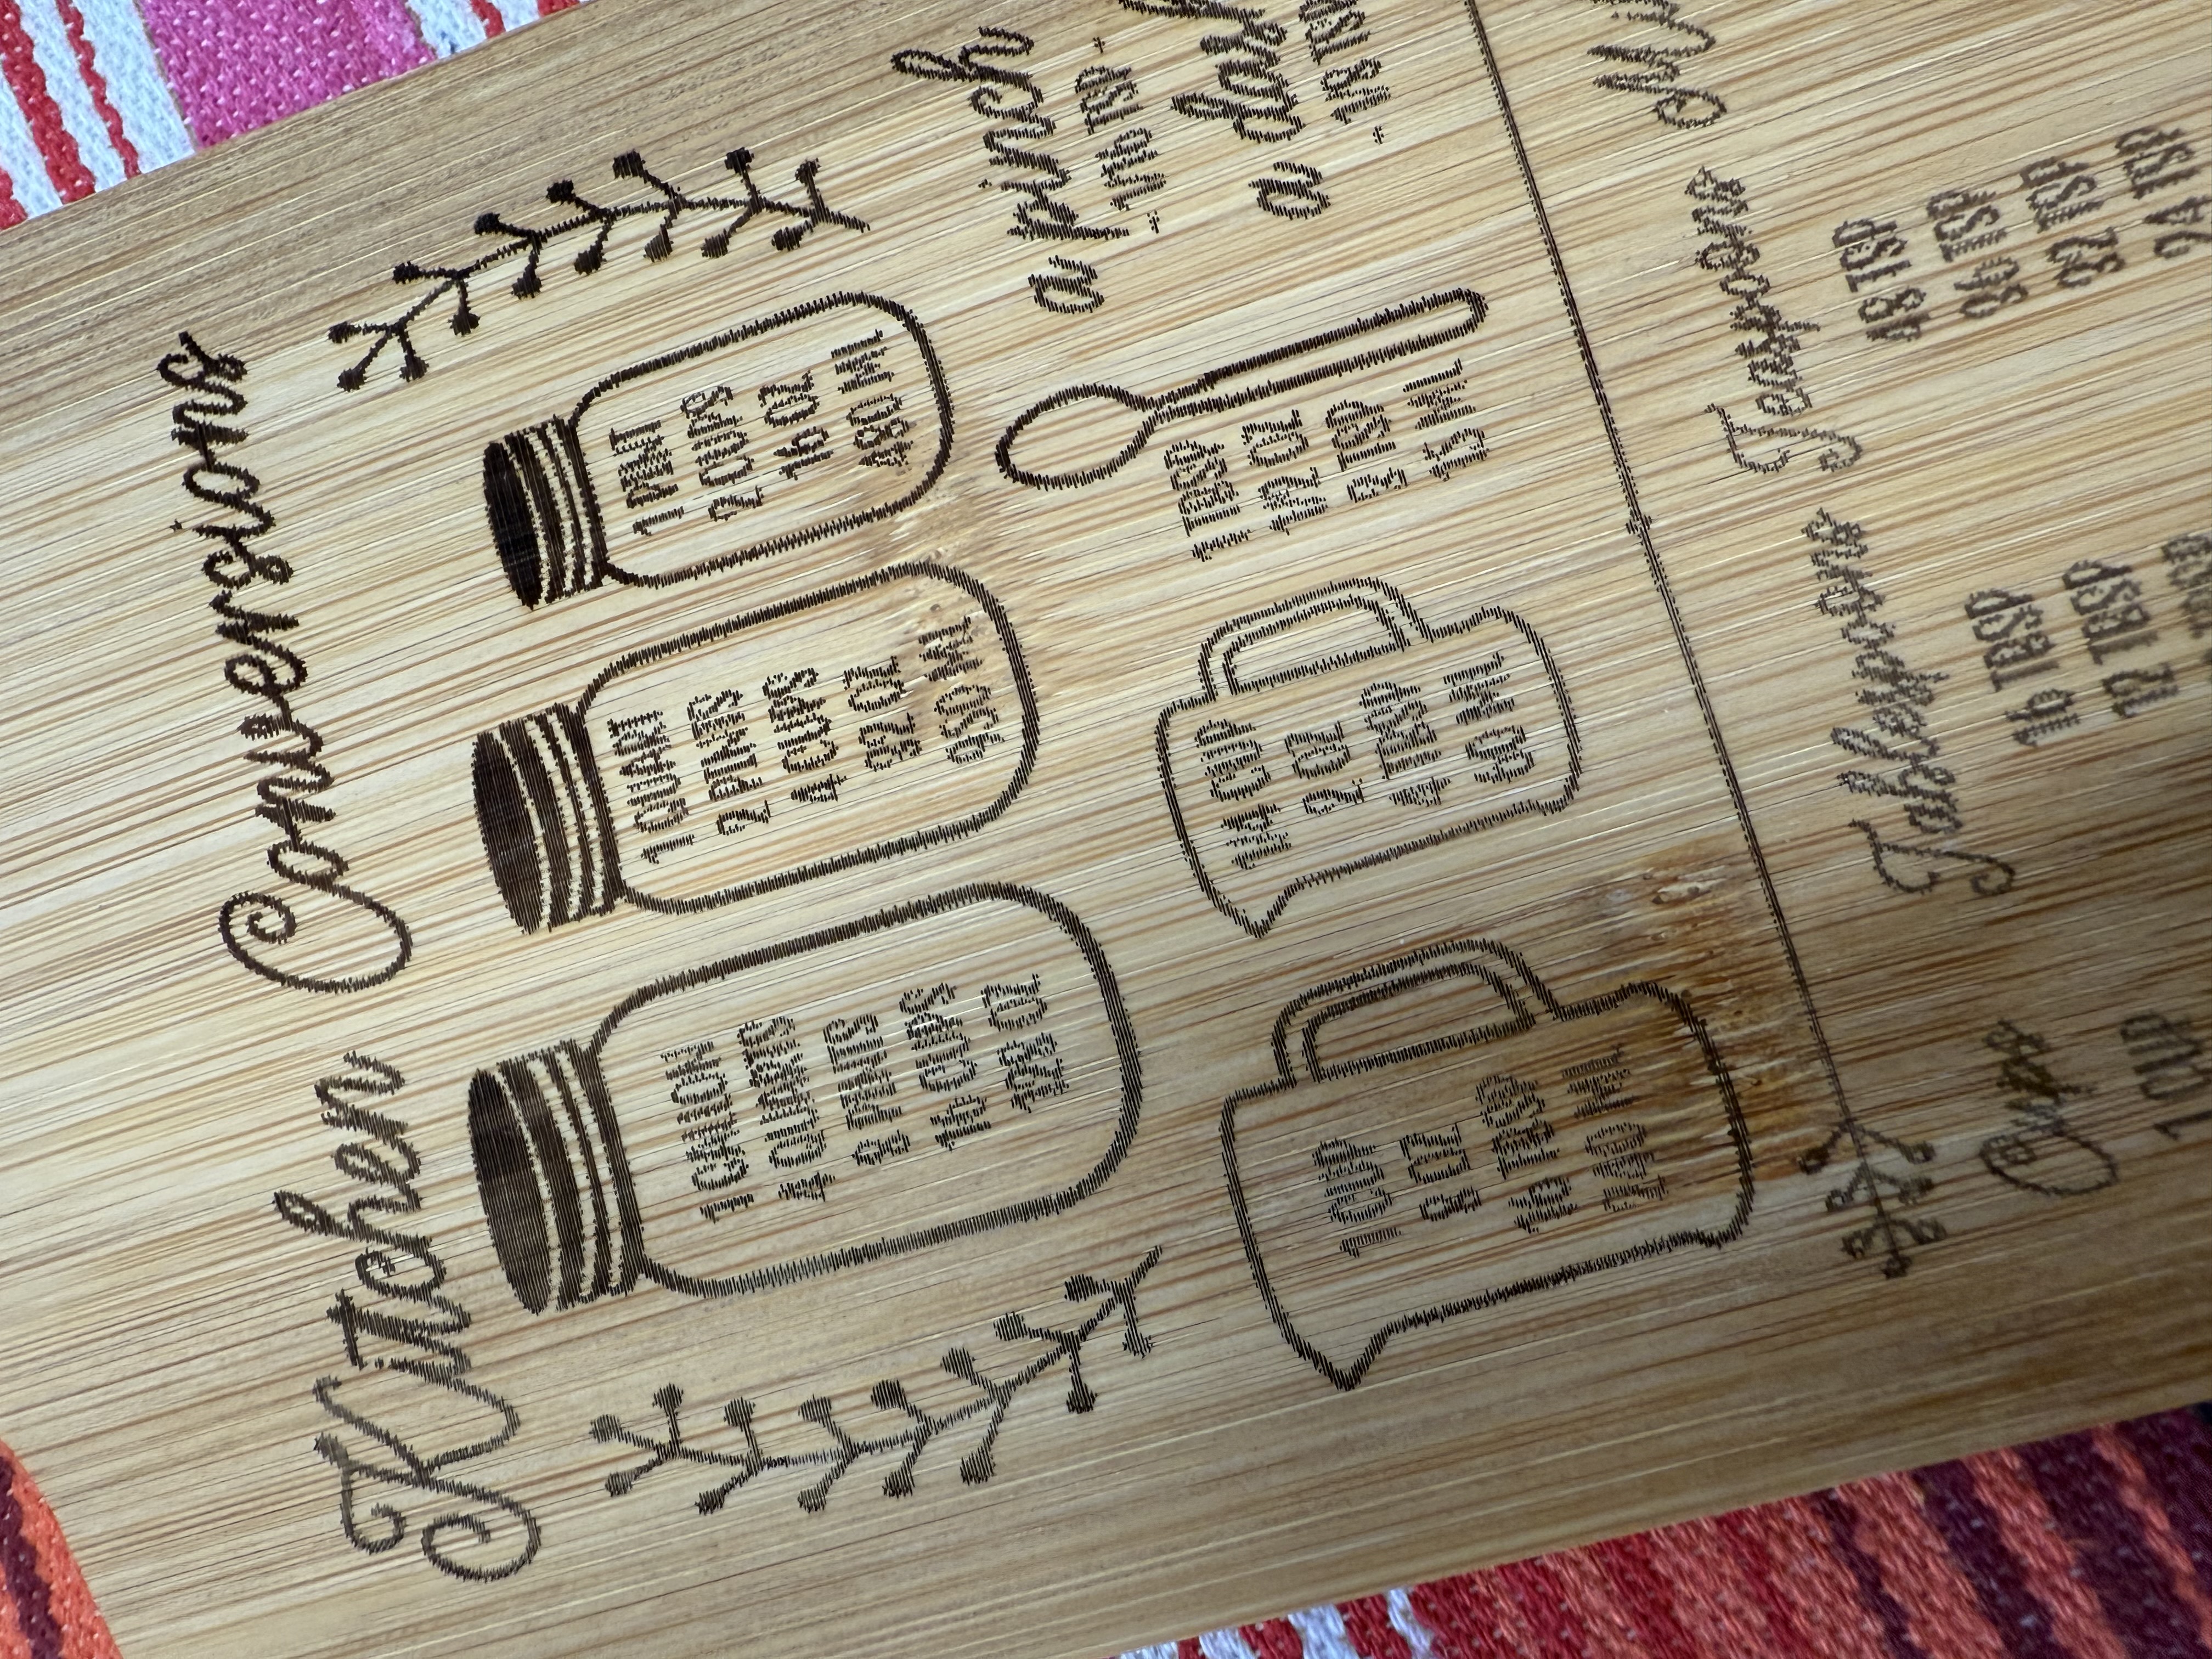 Kitchen Conversions
1 GALLON
4 QUARTS
8 PINTS
16 CUPS
128 OZ
1 QUART
2 PINTS
4 CUPS
32 OZ
950 ML
1 PINT
2 CUPS
16 OZ
480 ML
1 CUP
8 OZ
16 TBSP
240 ML
1/4 CUP
2 OZ
4 TBSP
60 ML
1 TBSP
1/2 OZ
3 TSP
15 ML
a pinch
- 1/16 TSP -
a dash
- 1/8 TSP
Cups Tablespoons Teaspoons
1 CUP 16 TBSP 48 TSP
12 TBSP 36 TSP
TBSP 32 TSP
24 TSP